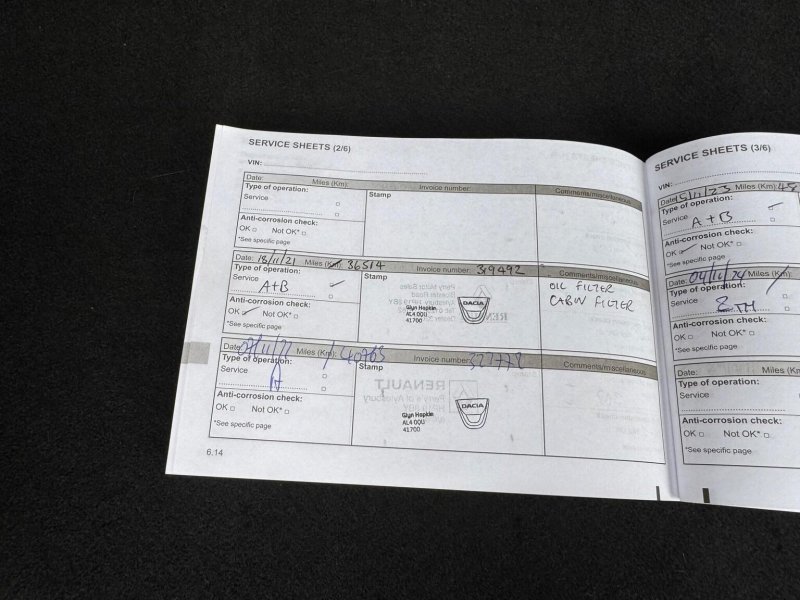 SERVICE SHEETS (2/6)
VIN:
Date: Miles (Km): Invoice number: Comments/miscellaneous
Type of operation: Stamp
Service
Anti-corrosion check:
OK Not OK*
*See specific page
Date: 18/11/21 Miles (Km): 36514 Invoice number: 319492 Comments/miscellaneous
Type of operation: Stamp
Service A+B
OIL FILTER
CABIN FILTER
DACIA
Glyn Hopkin
AL4 0QU
41700
Anti-corrosion check:
OK Not OK*
*See specific page
Date: Miles (Km): 40765 Invoice number: Comments/miscellaneous
Type of operation: Stamp
Service A
DACIA
Glyn Hopkin
AL4 0QU
41700
Anti-corrosion check:
OK Not OK*
*See specific page
6.14
SERVICE SHEETS (3/6)
VIN:
Date: 15/11/23 Miles (Km): 48
Type of operation:
Service A+B
Anti-corrosion check:
OK Not OK*
*See specific page
Date: Miles (Km):
Type of operation:
Service
Anti-corrosion check:
OK Not OK*
*See specific page
Date: Miles (Km
Type of operation:
Service
Anti-corrosion check:
OK Not OK*
*See specific page